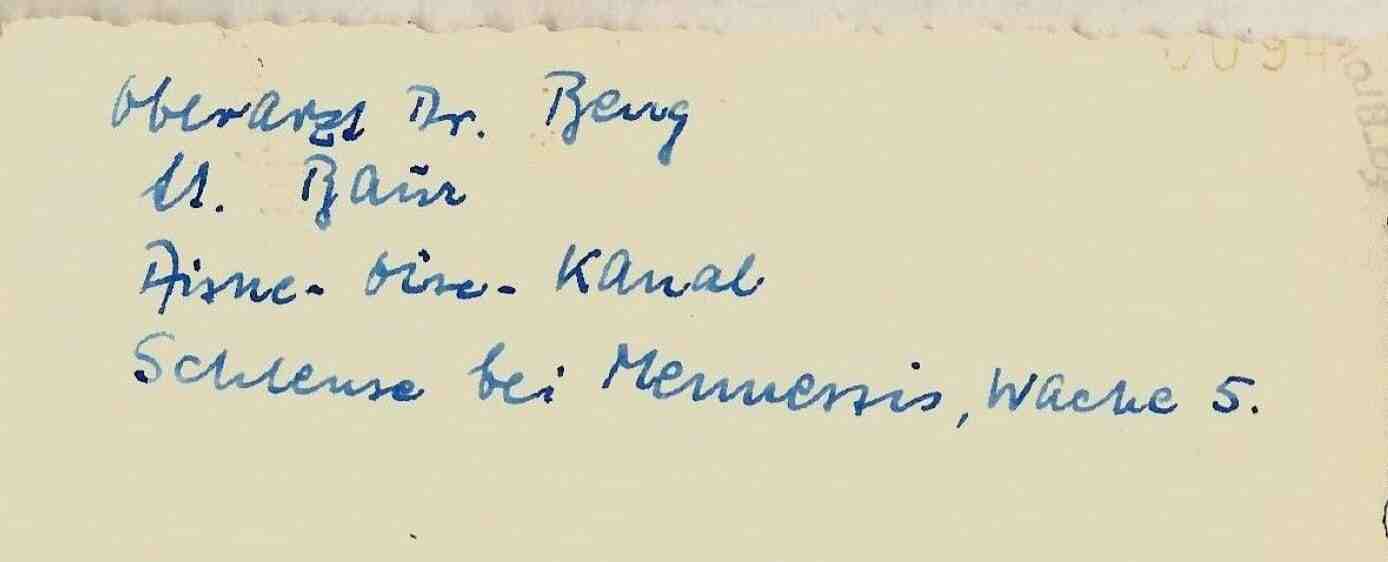 Oberarzt Dr. Beng
Lt. Baūr
Aisne-Oise-Kanal
Schleuse bei Mennessis, Wache 5.